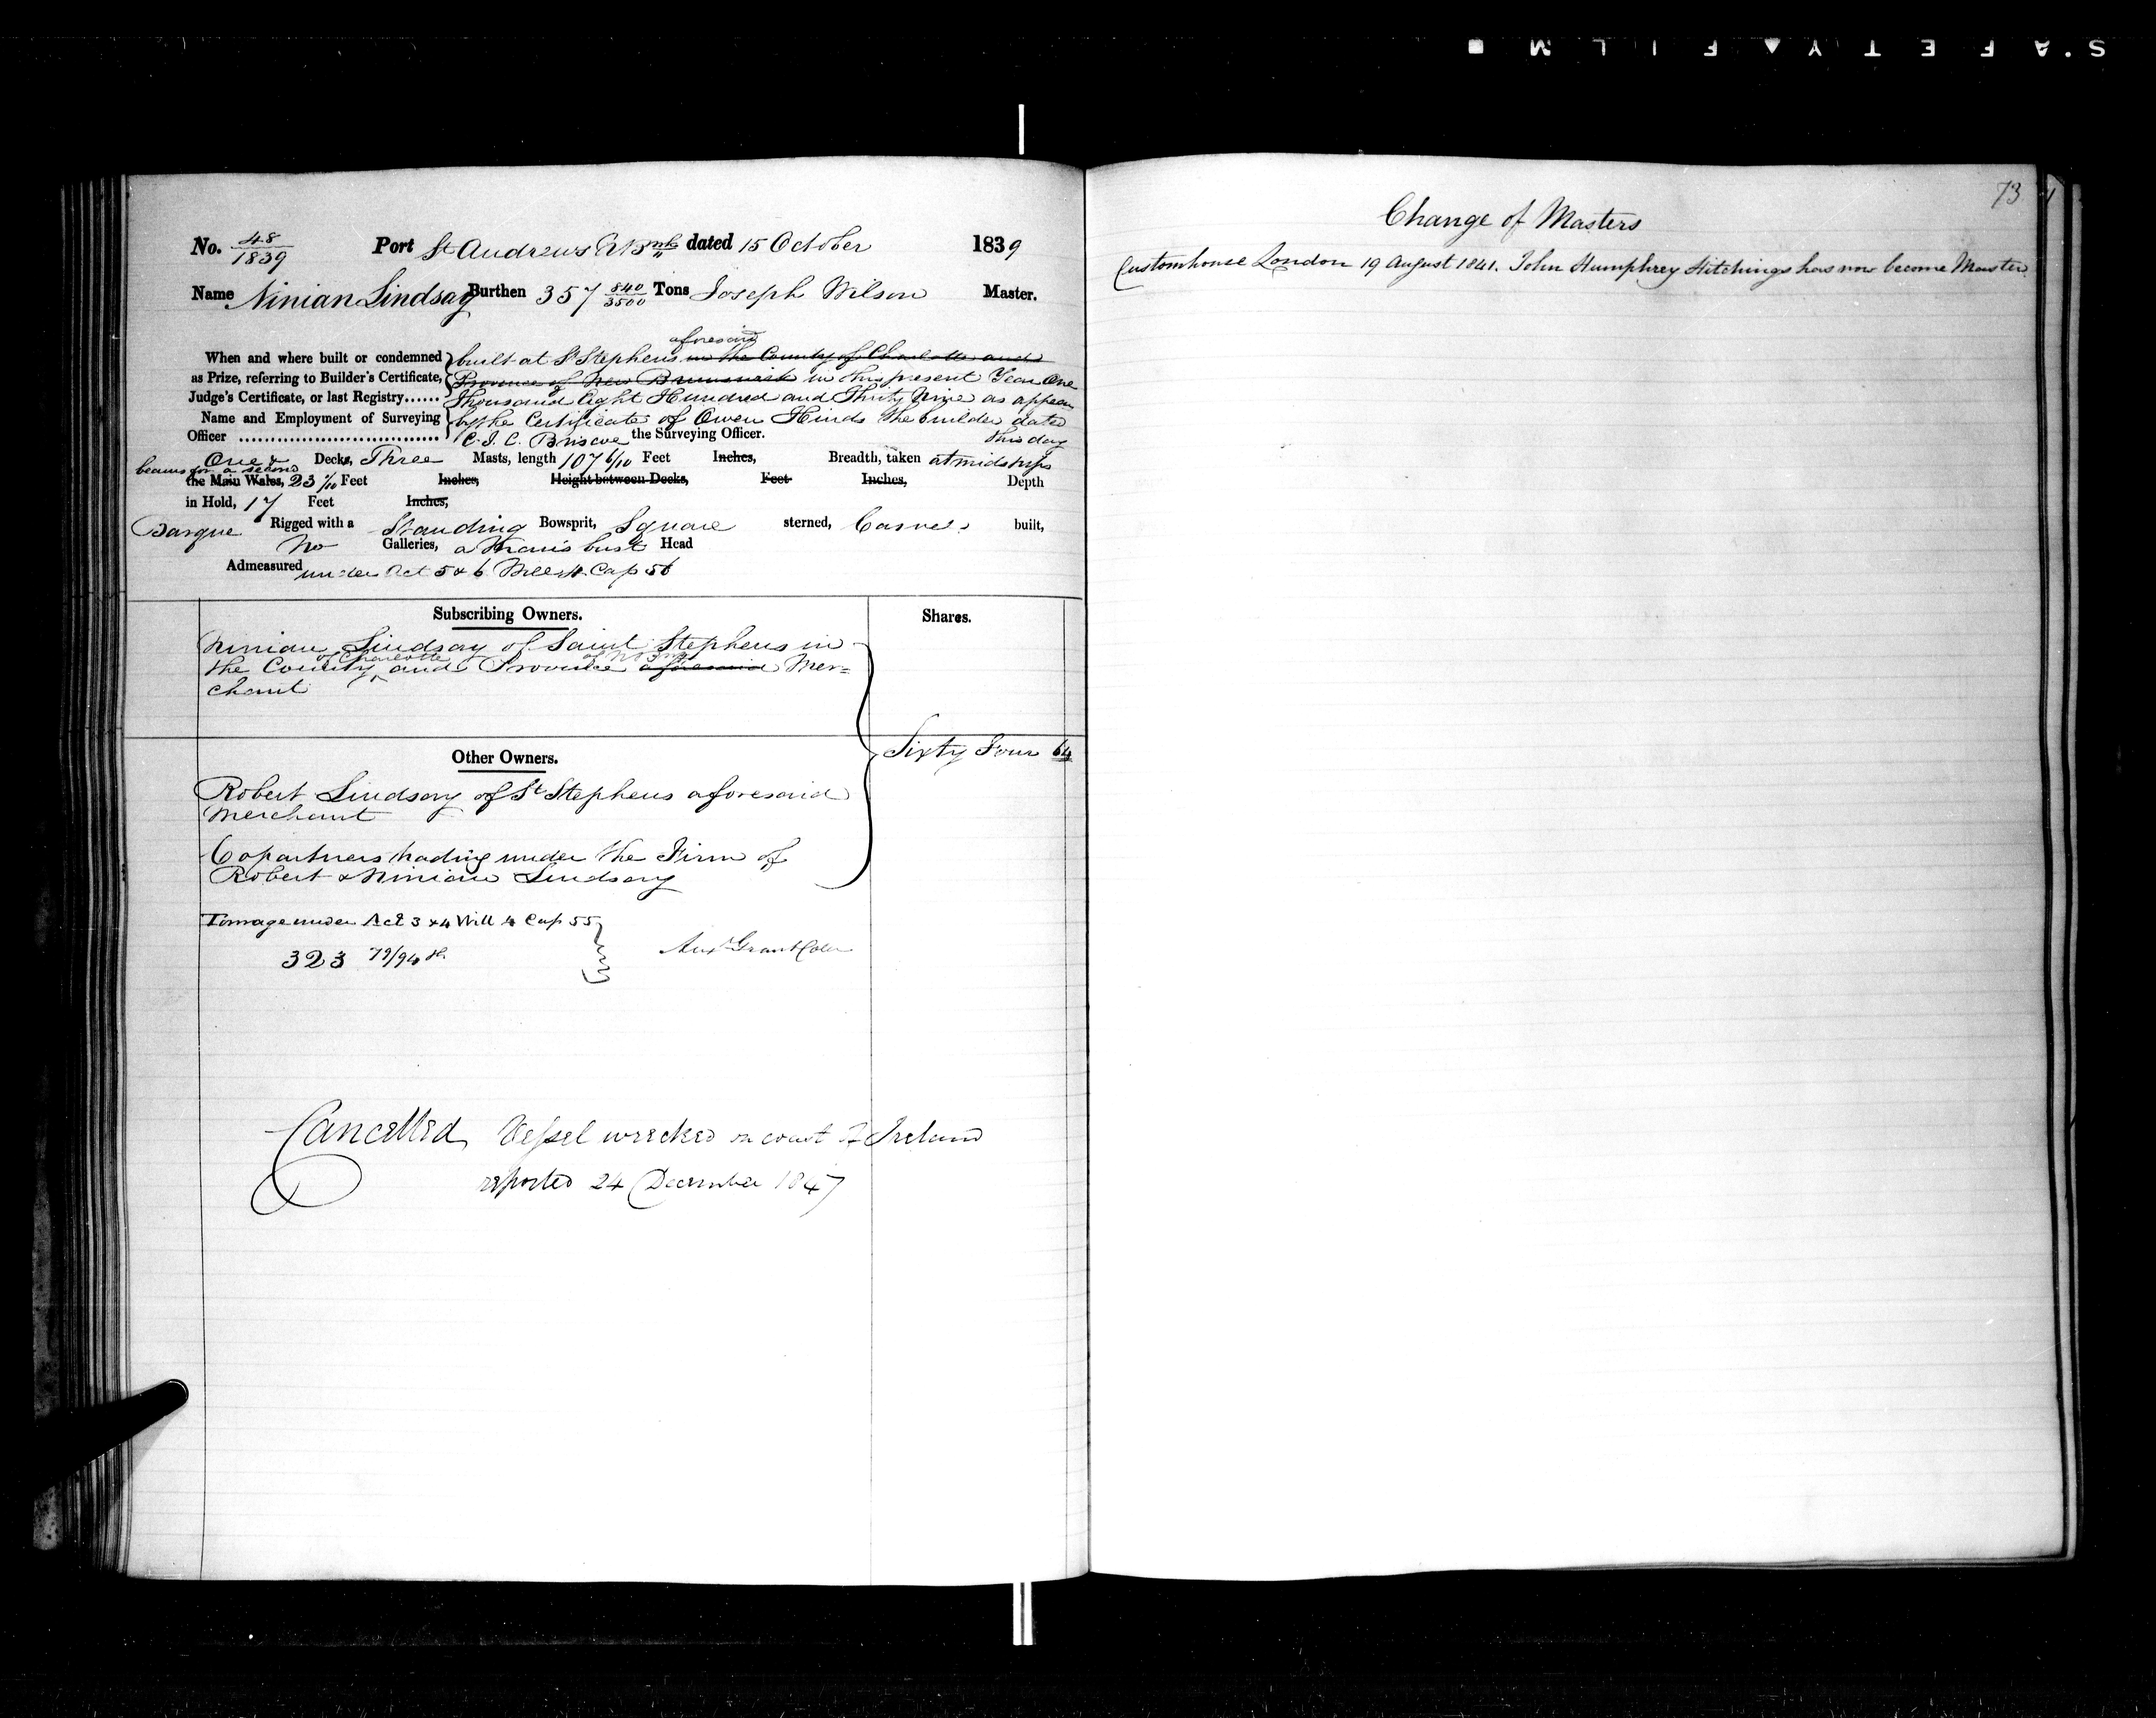 SAFETY FILM
No. 48/1839 Port St Andrews N Bwk dated 15 October 1839
Name Ninian Lindsay Burthen 357 840/3500 Tons Joseph Wilson Master.
aforesaid
When and where built or condemned built at St Stephens in the County of Charlotte and
as Prize, referring to Builder's Certificate, Province of New Brunswick in this present Year One
Judge's Certificate, or last Registry...... Thousand Eight Hundred and Thirty Nine as appears
Name and Employment of Surveying by the Certificate of Owen Hinds the builder dated
this day
Officer ................................. C. J. C. Briscoe the Surveying Officer.
One & Decks, Three Masts, length 107 6/10 Feet Inches, Breadth, taken at midships
beams for a second
the Main Wales, 23 /10 Feet Inches, Height between Decks, Feet Inches, Depth
in Hold, 17 Feet Inches,
Barque Rigged with a Standing Bowsprit, Square sterned, Carvel built,
No Galleries, a Man's bust Head
Admeasured under Act 5 & 6 Will 4 Cap 56
Subscribing Owners. Shares.
Ninian Lindsay of Saint Stephens in
of Charlotte of N Bwk
the County and Province aforesaid Mer=
chant
Sixty Four 64
Other Owners.
Robert Lindsay of St Stephens aforesaid
Merchant
Copartners trading under the Firm of
Robert & Ninian Lindsay
Tonnage under Act 3 & 4 Will 4 Cap 55
323 79/94th
Alexr Grant Coller
Cancelled Vessel wrecked on coast of Ireland
reported 24 December 1847
73
Change of Masters
Customhouse London 19 August 1841. John Humphrey Hitchings has now become Master